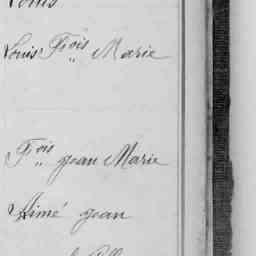 Louis
Louis Fois Marie
Fois Jean Marie
Aimé Jean